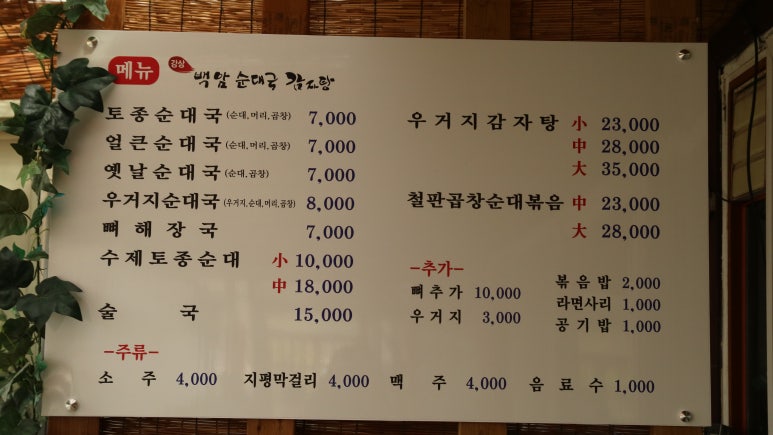 메뉴 강상 백암 순대국 감자탕
토종순대국 (순대,머리,곱창) 7,000
얼큰순대국 (순대,머리,곱창) 7,000
옛날순대국 (순대,곱창) 7,000
우거지순대국 (우거지,순대,머리,곱창) 8,000
뼈해장국 7,000
수제토종순대 小 10,000
中 18,000
술국 15,000
우거지감자탕 小 23,000
中 28,000
大 35,000
철판곱창순대볶음 中 23,000
大 28,000
-추가-
뼈추가 10,000
우거지 3,000
볶음밥 2,000
라면사리 1,000
공기밥 1,000
-주류-
소주 4,000 지평막걸리 4,000 맥주 4,000 음료수 1,000